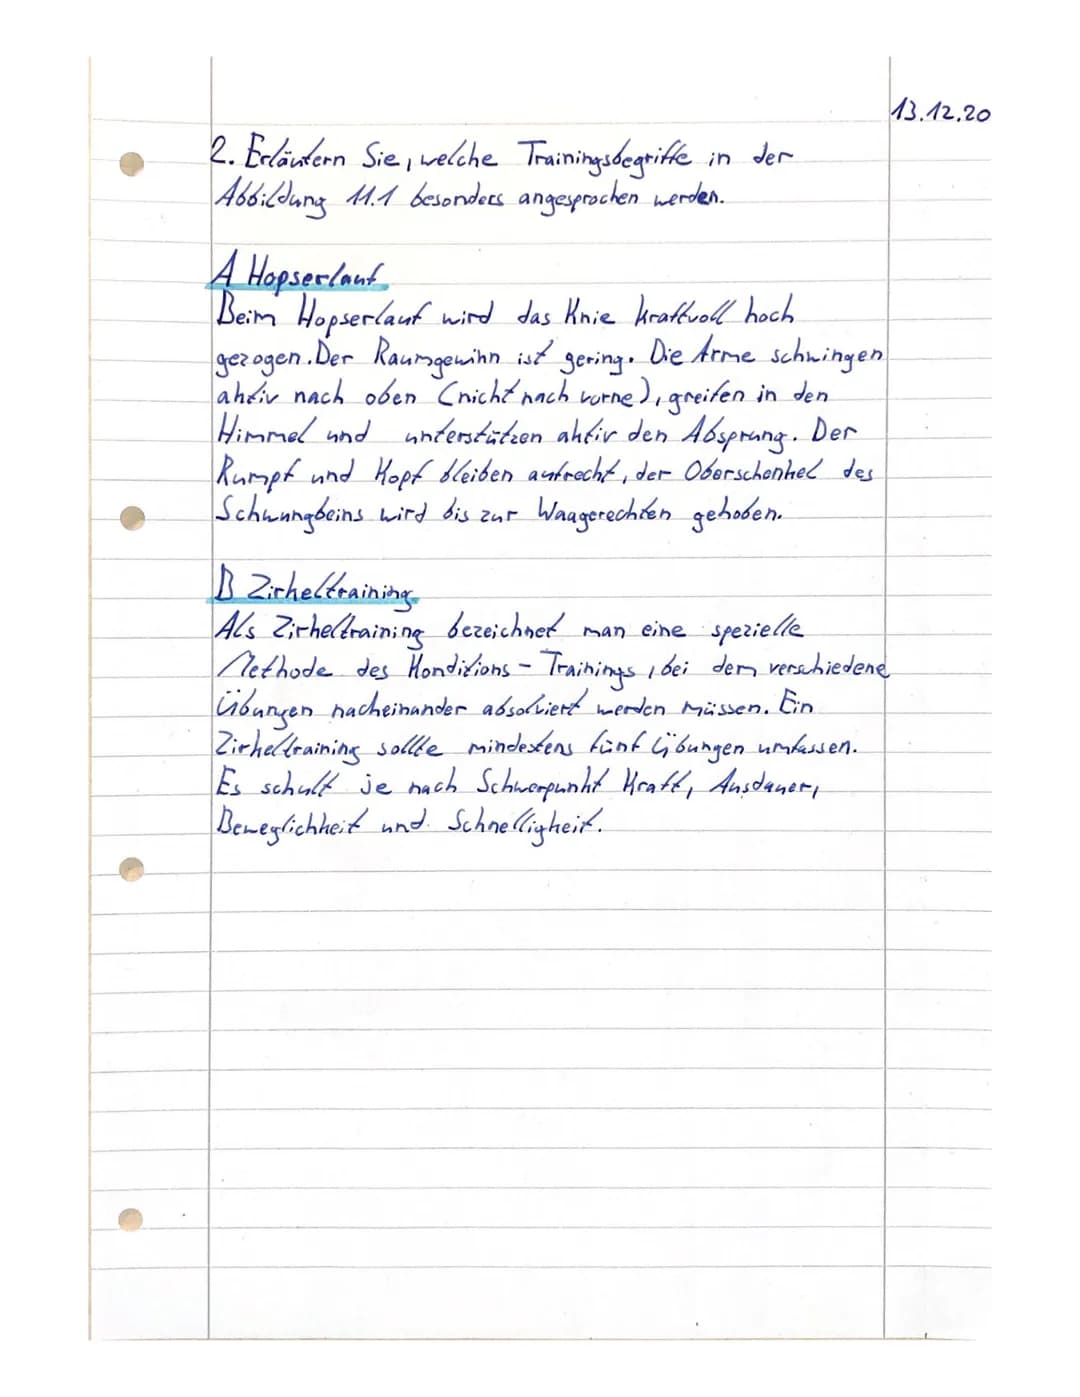 13.12.20
2. Erläutern Sie, welche Trainingsbegriffe in der
Abbildung 11.1 besonders angesprochen werden.
A Hopserlauf
Beim Hopserlauf wird das Knie kraftvoll hoch
gezogen. Der Raumgewinn ist gering. Die Arme schwingen
aktiv nach oben (nicht nach vorne), greifen in den
Himmel und unterstützen aktiv den Absprung. Der
Rumpf und Kopf bleiben aufrecht, der Oberschenkel des
Schwungbeins wird bis zur Waagerechten gehoben.
B Zirkeltraining
Als Zirkeltraining bezeichnet man eine spezielle
Methode des Konditions-Trainings, bei dem verschiedene
Übungen nacheinander absolviert werden müssen. Ein
Zirkeltraining sollte mindestens fünf Übungen umfassen.
Es schult je nach Schwerpunkt Kraft, Ausdauer,
Beweglichkeit und Schnelligkeit.